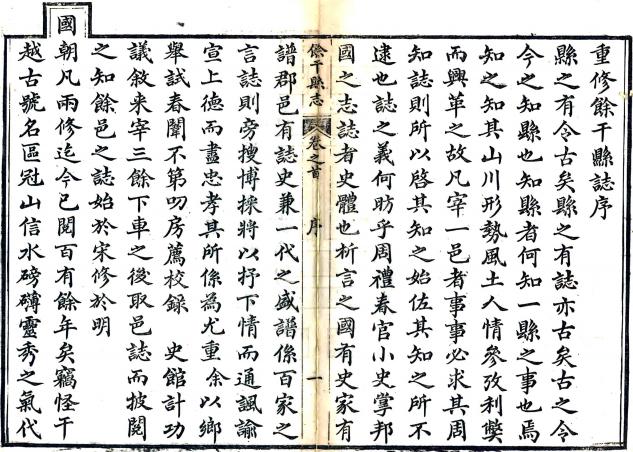 重修餘干縣誌序
縣之有令古矣縣之有誌亦古矣古之令
今之知縣也知縣者何知一縣之事也焉
知之知其山川形勢風土人情參攷利獘
而興革之故凡宰一邑者事事必求其周
知誌則所以啓其知之始佐其知之所不
逮也誌之義何昉乎周禮春官小史掌邦
國之志誌者史體也析言之國有史家有
餘干縣志 卷之首 序 一
譜郡邑有誌史兼一代之盛譜係百家之
言誌則旁搜博採將以抒下情而通諷諭
宣上德而盡忠孝其所係為尤重余以鄉
舉試春闈不第叨房薦校録 史館計功
議敘来宰三餘下車之後取邑誌而披閱
之知餘邑之誌始於宋修於明
國朝凡兩修迄今已閱百有餘年矣竊怪干
越古號名區冠山信水磅礴靈秀之氣代